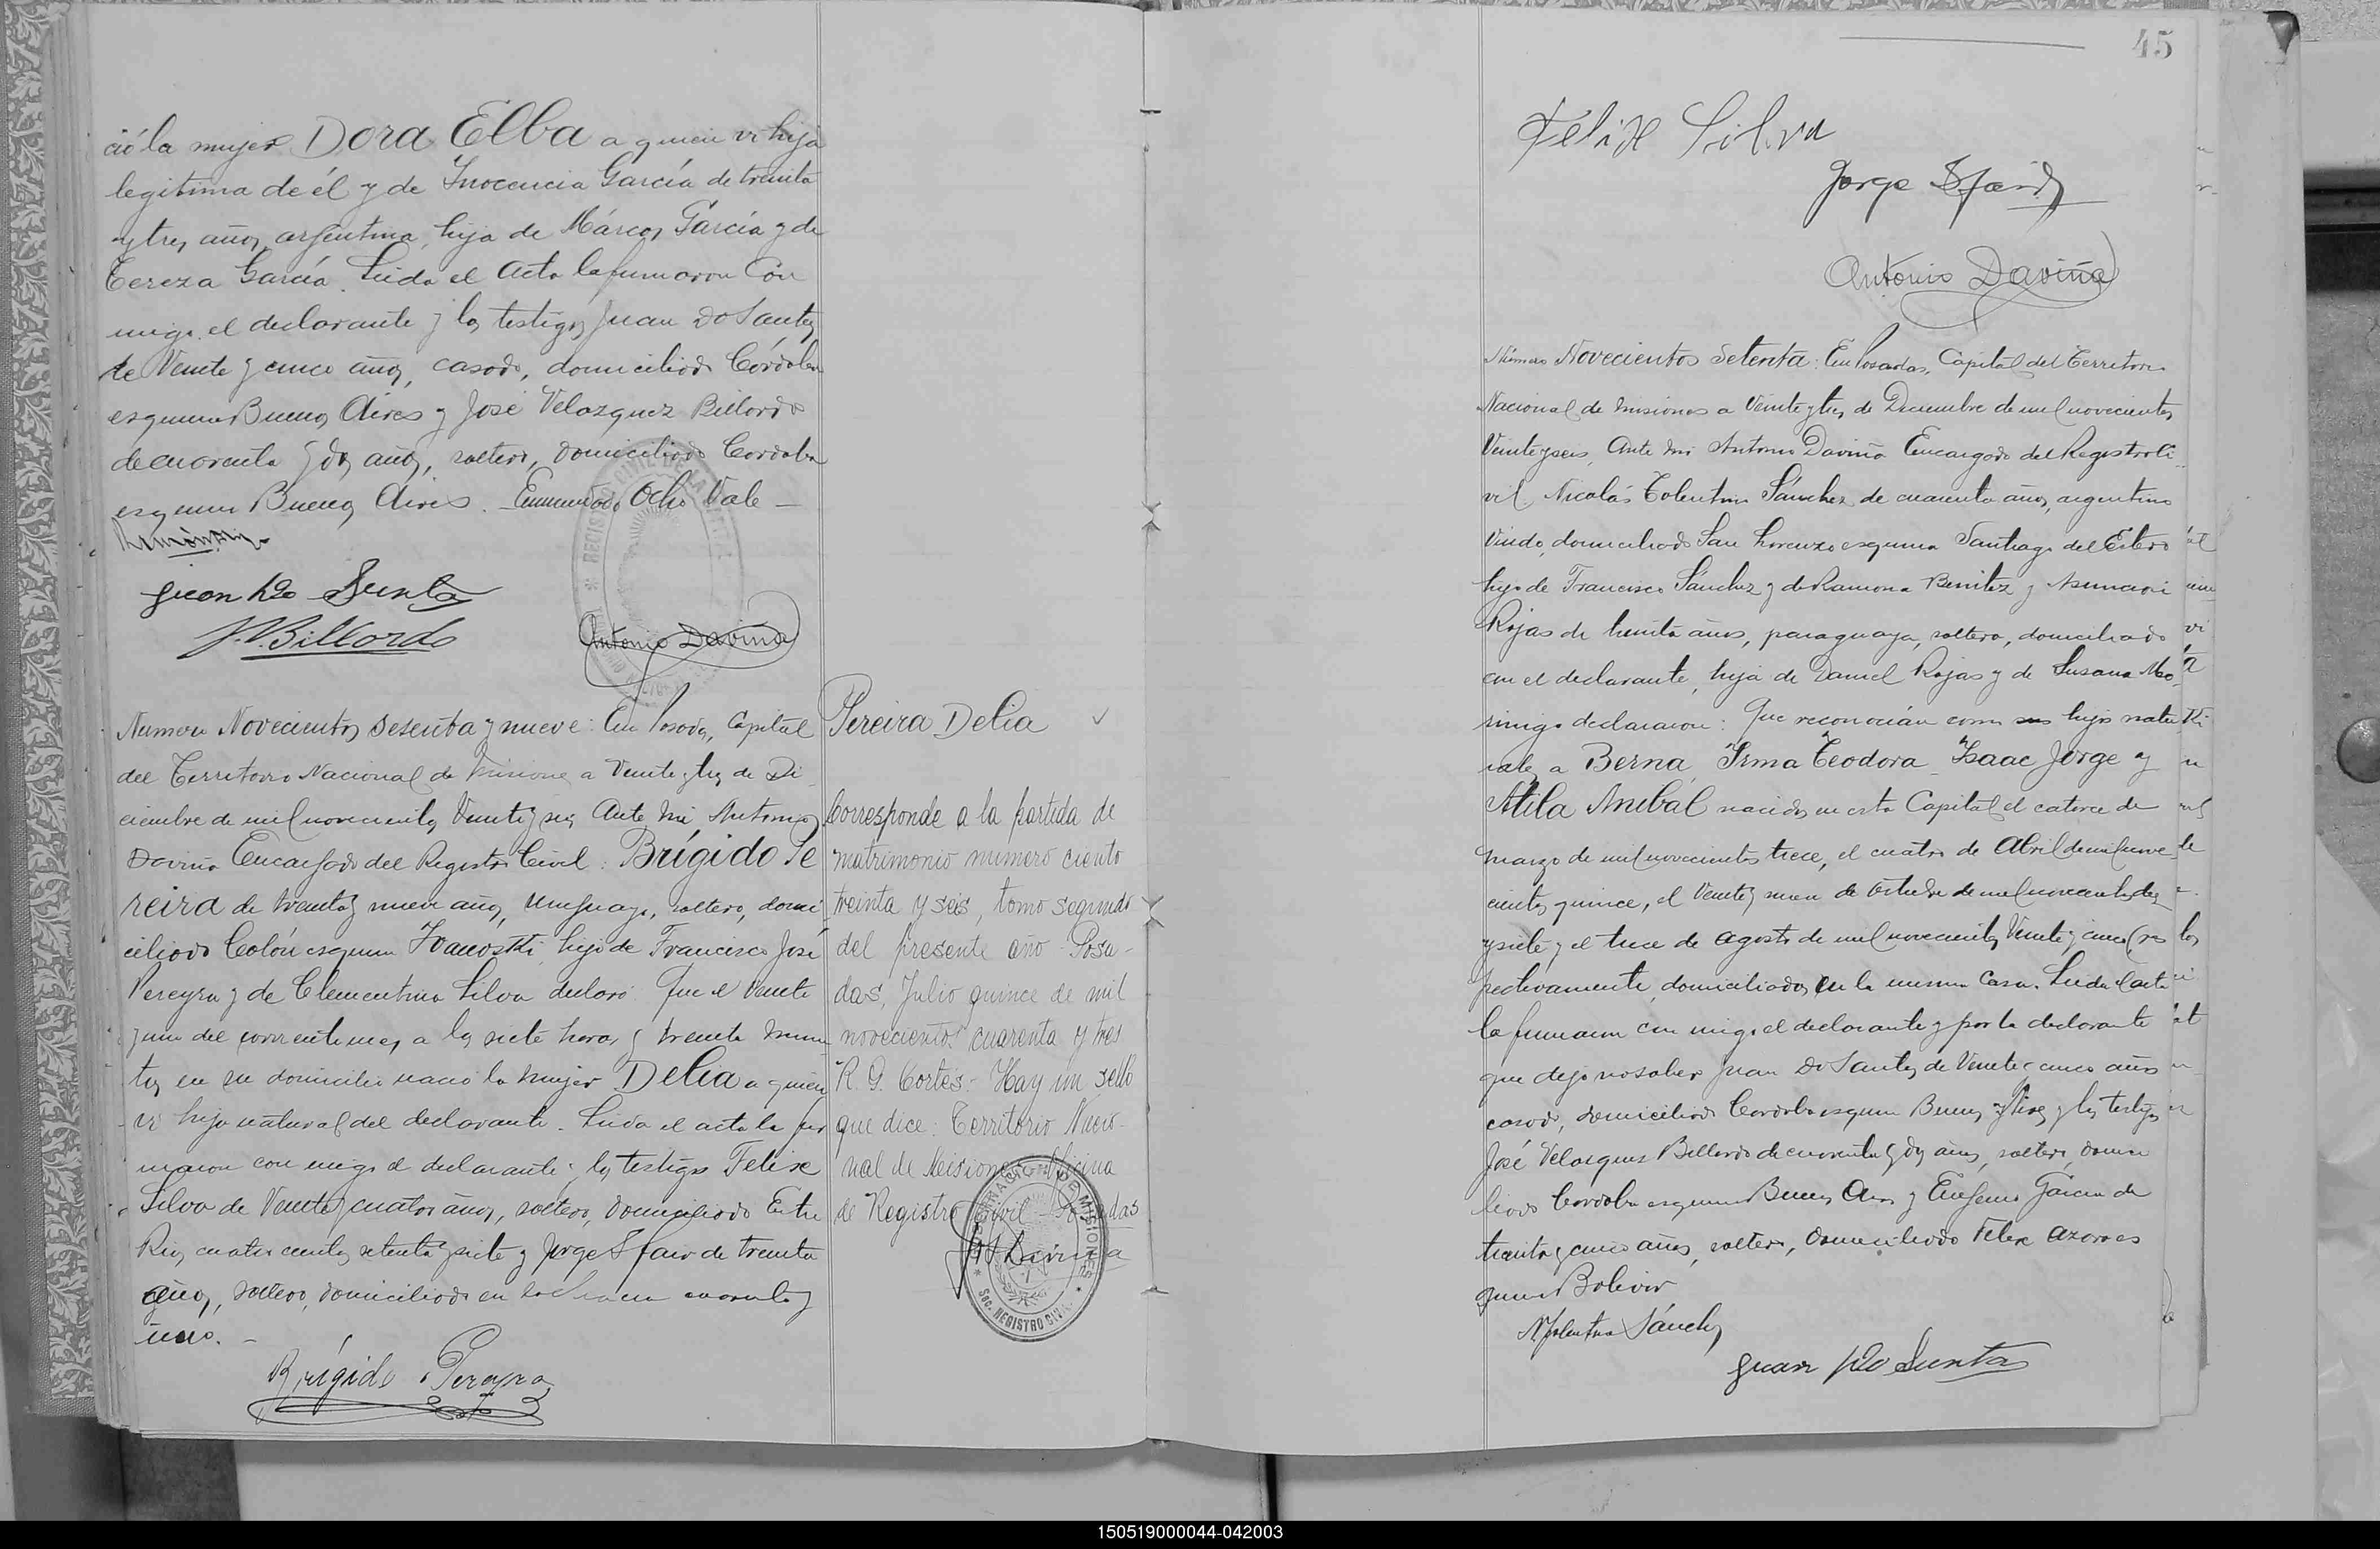 ció la mujer Dora Elba a quien vi hija
legitima de él y de Inocencia García de treinta
y tres años, argentina, hija de Márcos García y de
Tereza García. Leida el Acta la firmaron con
migo el declarante y los testigos Juan Do Santos
de Veinte y cinco años, casado, domiciliado Córdoba
esquina Buenos Aires y José Velazquez Billordo
de cuarenta y dos años, soltero, domiciliado Cordoba
esquina Buenos Aires. Enmendado Ocho Vale —
Juan Do Santo
J. V. Billordo
Antonio Daviña
Numero Novecientos sesenta y nueve: En Posadas, Capital
del Territorio Nacional de Misiones a Veinte y tres de Di
ciembre de mil novecientos Veinte y seis Ante mi Antonio
Daviña Encargado del Registro Civil: Brígido Pe
reira de treinta y nueve años, Uruguayo, soltero, domi
ciliado Colón esquina hijo de Francisco José
Pereyra y de Clementina Silva declaró Que el Veinte
y uno del corriente mes a las siete horas y treinta minu
tos en su domicilio nació la mujer Delia a quien
vi hija natural del declarante. Leida el acta la fir
maron con migo el declarante y los testigos Felise
Silva de Veinte y cuatro años, soltero, domiciliado Entre
Rios cuatrocientos setenta y siete y Jorge Sfair de treinta
años, soltero, domiciliado en cuarenta y
uno. —
Brígido Pereyra
Pereira Delia ✓
Corresponde a la partida de
matrimonio numero ciento
treinta y seis, tomo segundo
del presente año - Posa-
das, Julio quince de mil
novecientos cuarenta y tres
R. G. Cortes - Hay un sello
que dice: Territorio Nacio-
nal de Misiones - Oficina
de Registro Civil - Posadas
Daviña
GOBERNACIÓN DE MISIONES
Sec. REGISTRO CIVIL
45
Felise Silva
Jorge Sfair
Antonio Daviña
Número Novecientos Setenta: En Posadas, Capital del Territorio
Nacional de Misiones a Veinte y tres de Diciembre de mil novecientos
Veinte y seis, Ante mi Antonio Daviña Encargado del Registro Ci-
vil Nicolás Tolentino Sánchez de cuarenta años, argentino
Viudo, domiciliado San Lorenzo esquina Santiago del Estero
hijo de Francisco Sánchez y de Ramona Benitez y Asunción
Rojas de treinta años, paraguaya, soltera, domiciliada
con el declarante, hija de Daniel Rojas y de Susana Mo-
rinigo declararon: Que reconocían como sus hijos natu
rales a Berna, Irma Teodora, Isaac Jorge y
Atila Anibal nacidos en esta Capital el catorce de
marzo de mil novecientos trece, el cuatro de Abril de mil nove-
cientos quince, el Veinte y nueve de Octubre de mil novecientos diez
y siete y el trece de agosto de mil novecientos Veinte y cinco res
pectivamente, domiciliados en la misma casa. Leida el acta
la firmaron con migo el declarante y por la declarante
que dijo no saber Juan Do Santos de Veinte y cinco años
casado, domiciliado Cordoba esquina Buenos Aires y los testigos
José Velazquez Billordo de cuarenta y dos años, soltero, domici
liado Cordoba esquina Buenos Aires y Eugenio García de
treinta y cinco años, soltero, domiciliado Felix Azara es
quina Bolivar
N. Tolentino Sánchez
Juan Do Santo
150519000044-042003